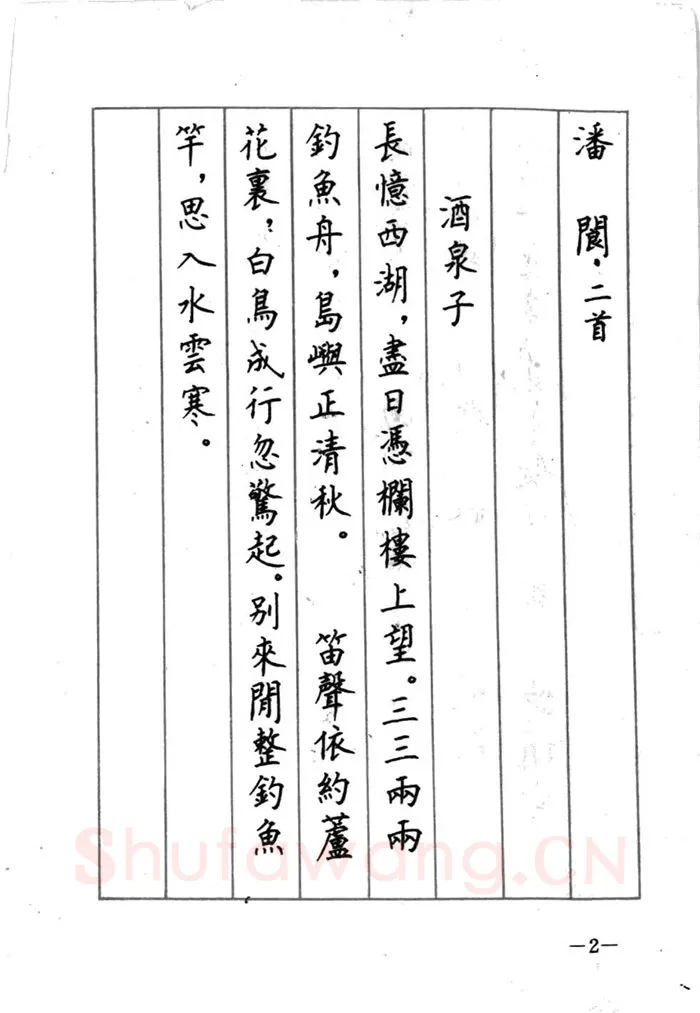 潘閬·二首
酒泉子
長憶西湖，盡日憑欄樓上望。三三兩兩
釣魚舟，島嶼正清秋。　笛聲依約蘆
花裏，白鳥成行忽驚起。別來閒整釣魚
竿，思入水雲寒。
Shufawang.CN
—2—